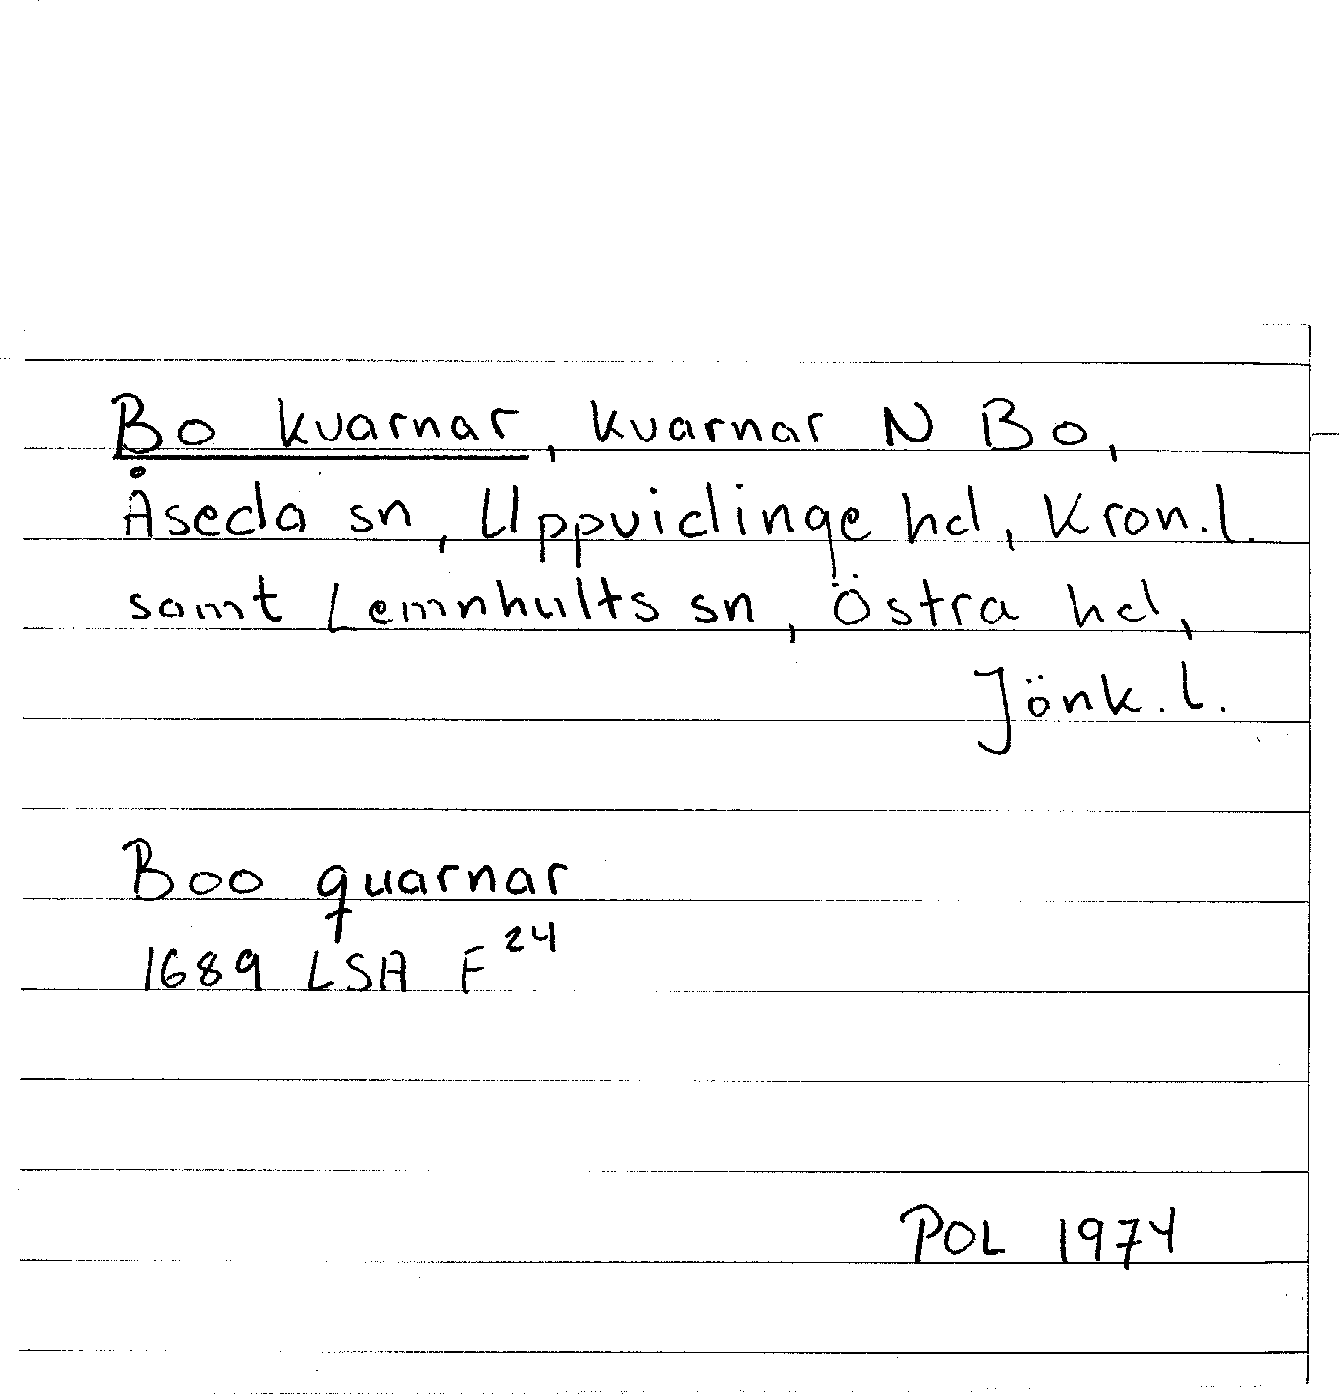 Bo kvarnar, kvarnar N Bo,
Åseda sn, Uppvidinge hd, Kron.l.
samt Lemnhults sn, Östra hd,
Jönk.l.
Boo quarnar
1689 LSA F²⁴
POL 1974